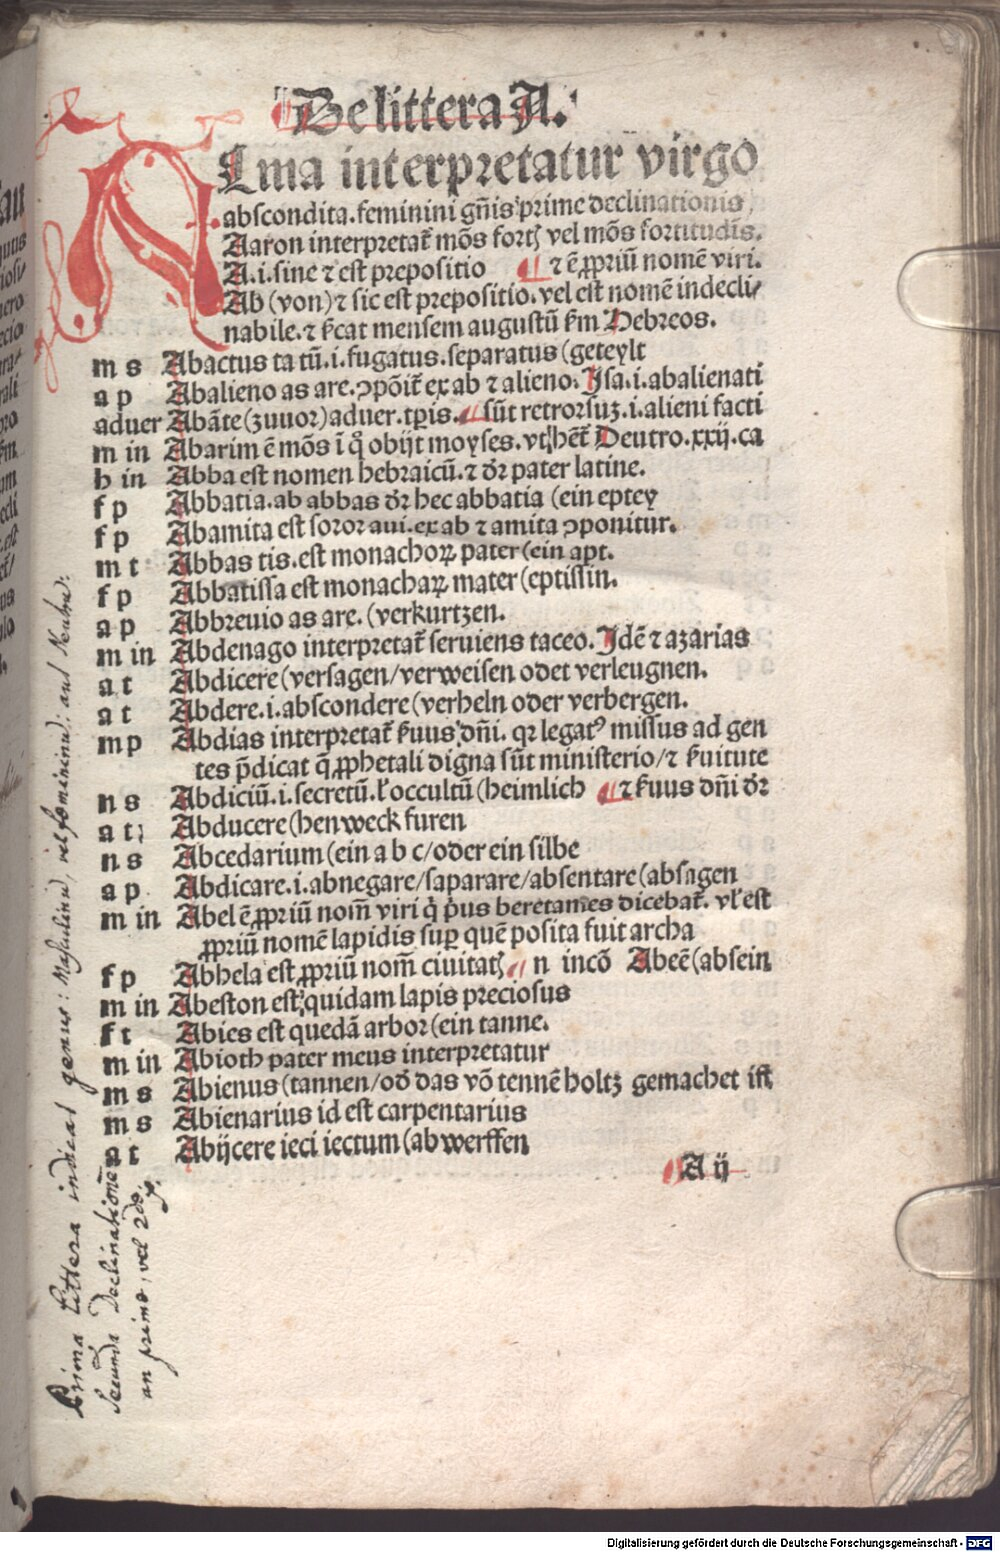 De littera A.
ALma interpretatur virgo
abscondita. feminini gñis prime declinationis
Aaron interpretat᷑ mõs fortꝭ vel mõs fortitudīs.
A .i. sine ⁊ est prepositio ¶ ⁊ ē ꝓpriū nomē viri.
Ab (von) ⁊ sic est prepositio. vel est nomē indecli/
nabile. ⁊ ſ̄cat mensem augustū ſm Hebreos.
m s Abactus ta tū .i. fugatus. separatus (geteylt
a p Abalieno as are. ↄpōit᷑ ex ab ⁊ alieno. Jsa. i. abalienati
aduer Abāte (zuuor) aduer. tp̄is. ¶ sūt retrorsuꝫ .i. alieni facti
m in Abarim ē mōs ī q̊ obijt moyses. vt hēt᷑ Deutro. xxij. ca
h in Abba est nomen hebraicū. ⁊ dr̄ pater latine.
f p Abbatia. ab abbas dr̄ hec abbatia (ein eptey
f p Abamita est soror aui. ex ab ⁊ amita ↄponitur.
m t Abbas tis. est monachoꝝ pater (ein apt.
f p Abbatissa est monachaꝝ mater (eptissin.
a p Abbreuio as are. (verkurtzen.
m in Abdenago interpretat᷑ seruiens taceo. Jdē ⁊ azarias
a t Abdicere (versagen/verweisen odet verleugnen.
a t Abdere .i. abscondere (verheln oder verbergen.
m p Abdias interpretat᷑ ſuus dñi. qꝛ legatꝰ missus ad gen
tes p̄dicat q̄ ꝓphetali digna sūt ministerio/⁊ ſuitute
n s Abdiciū .i. secretū. ł occultū (heimlich ¶ ⁊ ſuus dñi dr̄
a t Abducere (hen weck furen
n s Abcedarium (ein a b c/oder ein silbe
a p Abdicare .i. abnegare/saparare/absentare (absagen
m in Abel ē ꝓpriū nom̄ viri q̇ pͥus beretames dicebat᷑. vł est
ꝓpriū nomē lapidis suꝑ quē posita fuit archa
f p Abhela est ꝓpriū nom̄ ciuitatꝭ ¶ n incō Abeē (absein
m in Abeston est quidam lapis preciosus
f t Abies est quedā arbor (ein tanne.
m in Abioth pater meus interpretatur
m s Abienus (tannen/od̄ das vō tennē holtz gemachet ist
m s Abienarius id est carpentarius
a t Abijcere ieci iectum (ab werffen
A ij
Prima littera indicat genus: Masculinū, vel fœmininū: aut Neutrū.
Secunda Declinationē
an prima, vel 2da
Digitalisierung gefördert durch die Deutsche Forschungsgemeinschaft - DFG